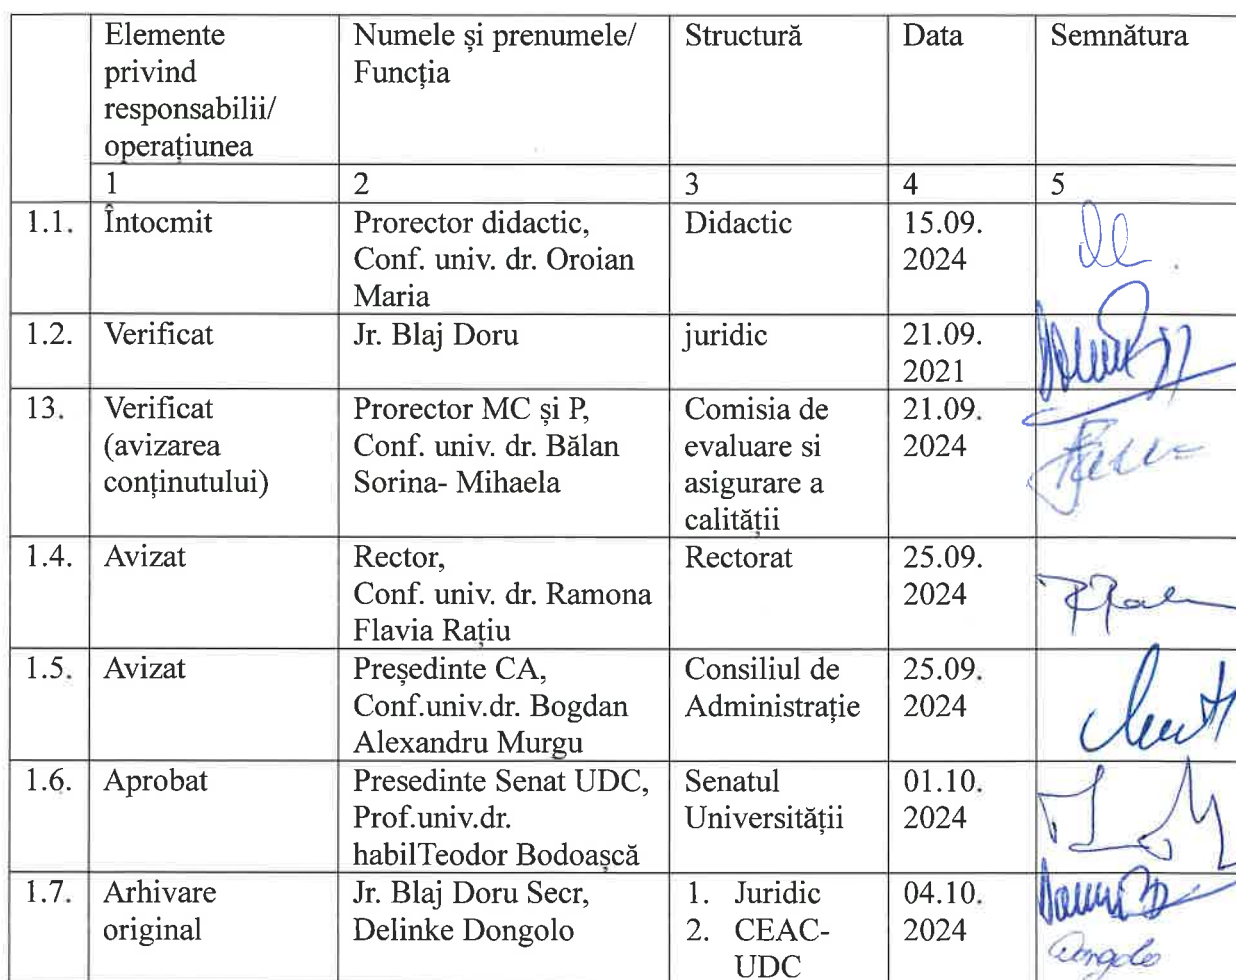 Elemente privind responsabilii/ operațiunea
Numele și prenumele/ Funcția
Structură
Data
Semnătura
1
2
3
4
5
1.1.
Întocmit
Prorector didactic,
Conf. univ. dr. Oroian
Maria
Didactic
15.09.
2024
1.2.
Verificat
Jr. Blaj Doru
juridic
21.09.
2021
13.
Verificat
(avizarea
conținutului)
Prorector MC și P,
Conf. univ. dr. Bălan
Sorina- Mihaela
Comisia de
evaluare si
asigurare a
calității
21.09.
2024
1.4.
Avizat
Rector,
Conf. univ. dr. Ramona
Flavia Rațiu
Rectorat
25.09.
2024
1.5.
Avizat
Președinte CA,
Conf.univ.dr. Bogdan
Alexandru Murgu
Consiliul de
Administrație
25.09.
2024
1.6.
Aprobat
Presedinte Senat UDC,
Prof.univ.dr.
habilTeodor Bodoașcă
Senatul
Universității
01.10.
2024
1.7.
Arhivare
original
Jr. Blaj Doru Secr,
Delinke Dongolo
1. Juridic
2. CEAC-
UDC
04.10.
2024